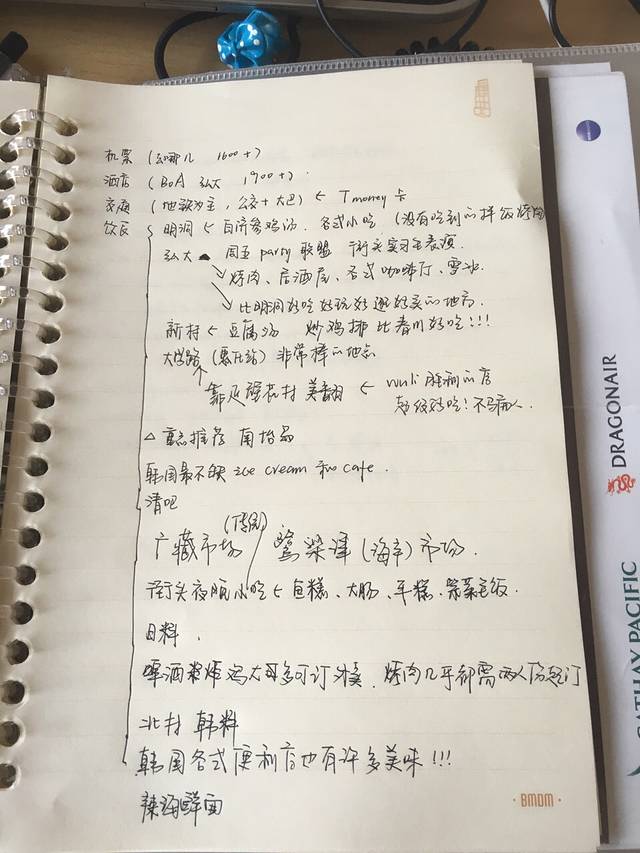 机票 (去哪儿 1600+)
酒店 (BoA 弘大 1900+)
交通 (地铁为主，公交+大巴) ← Tmoney 卡
饮食 明洞 ← 百济参鸡汤. 各式小吃 (没有吃到的拌饭烤肉
弘大 周五 party 联盟 街头实习生表演
烤肉、居酒屋、各式咖啡厅、雪冰
比明洞好吃好玩好逛好买的地方.
新村 ← 豆腐汤 炒鸡排 比春川好吃!!!
大学路 (惠化站) 非常棒的地点
靠近壁花村 美翻 ← wuli 胜利的店
超级好吃! 不骗人.
△ 重点推荐 南怡岛
韩国最不缺 ice cream 和 cafe.
清吧
广藏市场 (传统) / 鹭梁津 (海幸) 市场.
街头夜晚小吃 ← 鱼糕、大肠、年糕. 紫菜包饭.
日料.
啤酒炸鸡大可订外卖. 烤肉几乎都需两人份起订
北村 韩料
韩国各式便利店也有许多美味!!!
辣海鲜面
· BMDM ·
DRAGONAIR
CATHAY PACIFIC